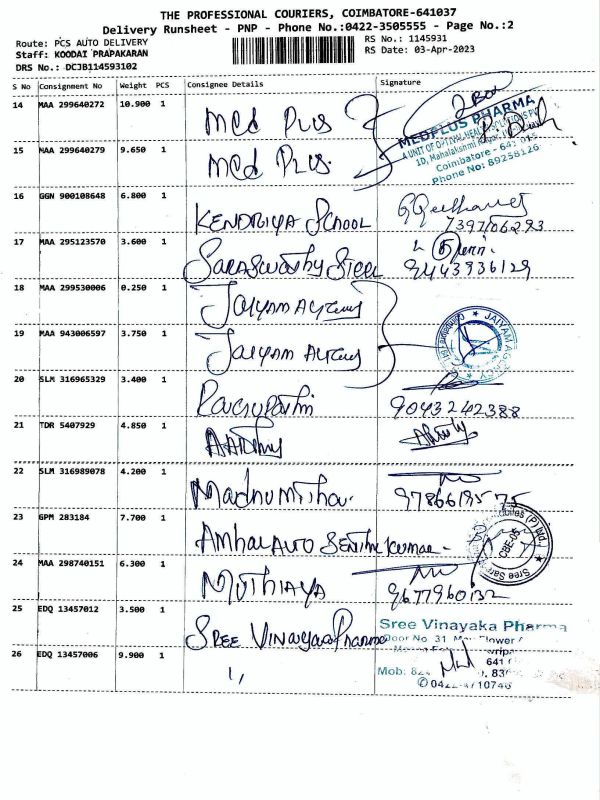 THE PROFESSIONAL COURIERS, COIMBATORE-641037
Delivery Runsheet - PNP - Phone No.:0422-3505555 - Page No.:2
Route: PCS AUTO DELIVERY
RS No.: 1145931
Staff: KOODAI PRAPAKARAN
RS Date: 03-Apr-2023
DRS No.: DCJB114593102
S No Consignment No Weight PCS Consignee Details Signature
14 MAA 299640272 10.900 1 Med Plus
MEDPLUS PHARMA
A UNIT OF OPTIVAL HEALTH SOLUTIONS
1D, Mahalakshmi Nagar,
Coimbatore - 641 015
Phone No: 89258126
15 MAA 299640279 9.650 1 Med Plus.
16 GGN 900108648 6.800 1 KENDRIYA SCHOOL
7397106293
17 MAA 295123570 3.600 1 Saraswathy Steel 9443936129
18 MAA 299530006 0.250 1 JAIYAM Agency
JAIYAM AGENCY
19 MAA 943006597 3.750 1 JAIYAM Agency
20 SLM 316965329 3.400 1 9043242388
21 TDR 5407929 4.850 1
22 SLM 316989078 4.200 1 Madhumitha.
23 GPM 283184 7.700 1 Amhal Auto Senthil Kumar -
CBE-05
24 MAA 298740151 6.300 1 MUTHIAYA 9677960132
25 EDQ 13457012 3.500 1 Sree Vinayaga Pharma
Sree Vinayaka Pharma
Door No 31
641
Mob:
26 EDQ 13457006 9.900 1 "